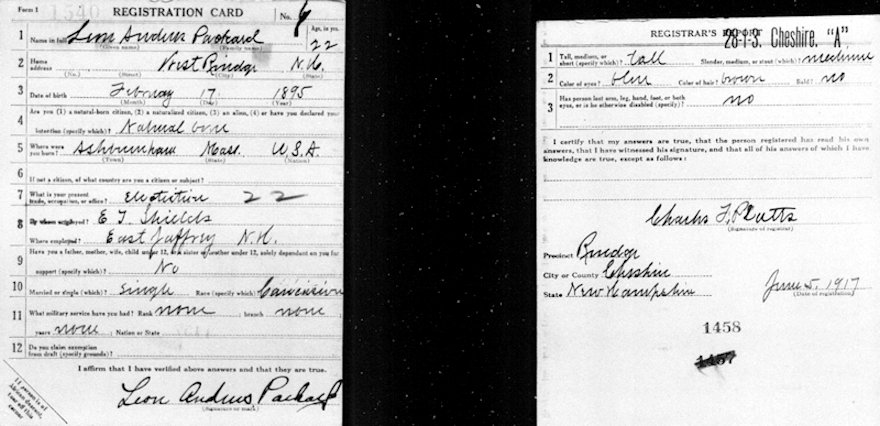 Form 1
1540
REGISTRATION CARD
No. 6
1 Name in full Leon Andrus Packard
(Given name) (Family name)
Age, in yrs. 22
2 Home address West Rindge N.H.
(No.) (Street) (City) (State)
3 Date of birth February 17 1895
(Month) (Day) (Year)
4 Are you (1) a natural-born citizen, (2) a naturalized citizen, (3) an alien, (4) or have you declared your
intention (specify which)? Natural born
5 Where were you born? Ashburnham Mass. U.S.A.
(Town) (State) (Nation)
6 If not a citizen, of what country are you a citizen or subject?
7 What is your present trade, occupation, or office? Electrician 22
8 By whom employed? E J Shields
Where employed? East Jaffrey N.H.
9 Have you a father, mother, wife, child under 12, or a sister or brother under 12, solely dependent on you for
support (specify which)? No
10 Married or single (which)? Single Race (specify which)? Caucasian
11 What military service have you had? Rank none ; branch none ;
years none ; Nation or State
12 Do you claim exemption from draft (specify grounds)?
I affirm that I have verified above answers and that they are true.
Leon Andrus Packard
(Signature or mark)
If person is of
African descent,
tear off this
corner
REGISTRAR'S REPORT
28-1-3. Cheshire. "A"
1 Tall, medium, or short (specify which)? tall Slender, medium, or stout (which)? medium
2 Color of eyes? blue Color of hair? brown Bald? no
3 Has person lost arm, leg, hand, foot, or both
eyes, or is he otherwise disabled (specify)? no
I certify that my answers are true, that the person registered has read his own
answers, that I have witnessed his signature, and that all of his answers of which I have
knowledge are true, except as follows:
Charles F. Platts
(Signature of registrar)
Precinct Rindge
City or County Cheshire
State New Hampshire
June 5, 1917
(Date of registration)
1458
1457